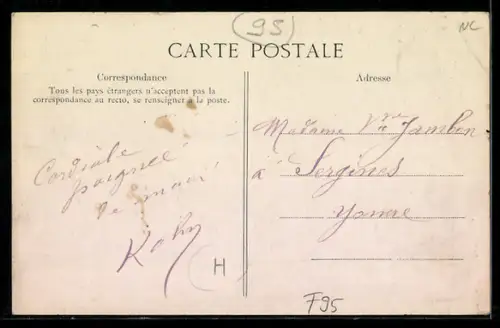 (95)
NC
CARTE POSTALE
Correspondance
Tous les pays étrangers n'acceptent pas la
correspondance au recto, se renseigner à la poste.
Cordiale
poignée
de main
Adresse
Madame Vve Jambon
à Sergines
Yonne
H
F95